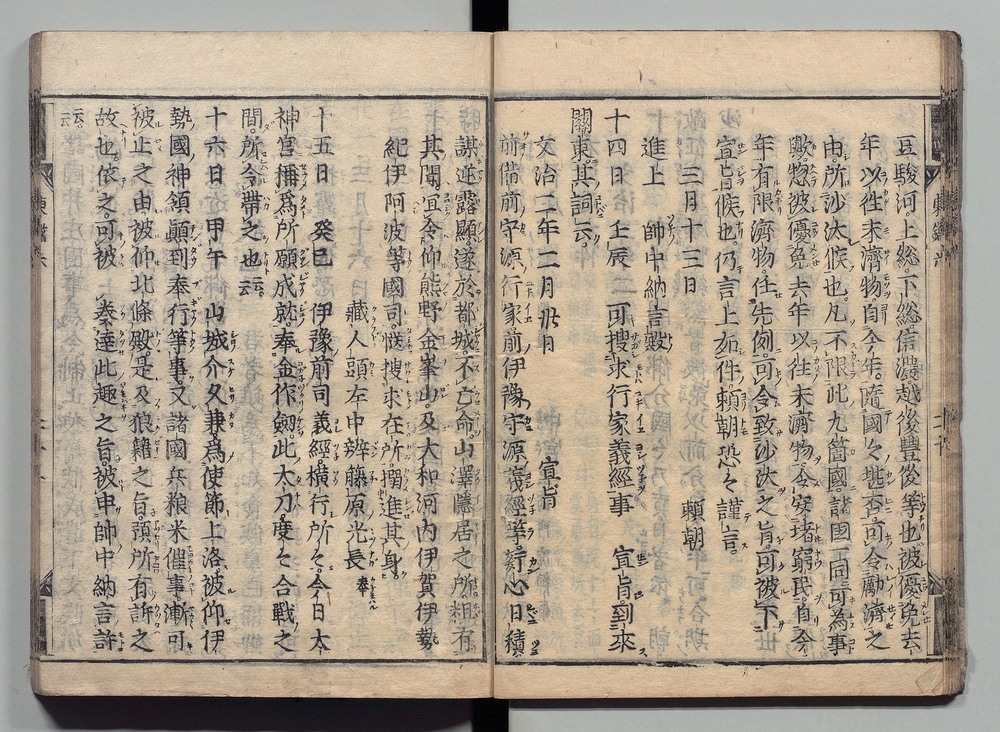 豆駿河上総下総信濃越後豊後等也被優免去
年以往未濟物自今年隨國々堪否可令勵濟之
由所沙汰候也凡不限此九箇國諸國一同可為事
歟惣被優免去年以往未濟物令安堵窮民自今
年有限濟物任先例可令致沙汰之旨可被下
宣旨候也仍言上如件頼朝恐々謹言
三月十三日 頼朝
進上 帥中納言殿
十四日 壬辰 可搜求行家義經事 宣旨到來
關東其詞云
文治二年二月卅日 宣旨
前備前守源行家前伊豫守源義經等野心日積
謀逆露顯遂於都城不亡命山澤隱居之所粗有
其聞宜令仰熊野金峯山及大和河内伊賀伊勢
紀伊阿波等國司慥搜求在所搦進其身
藏人頭左中辨藤原光長 奉
十五日 癸巳 伊豫前司義經横行所々今日太
神宮稱爲所願成就奉金作劔此太刀度々合戰之
間所令帶之也云云
十六日 甲午 山城介久兼爲使節上洛被仰伊
勢國神領顛到奉行等事又諸國兵粮米催事漸可
被止之由被仰北條殿是及狼籍之旨頻所有訴之
故也依之可被 奏達此趣之旨被申帥中納言許
云云
東鑑六